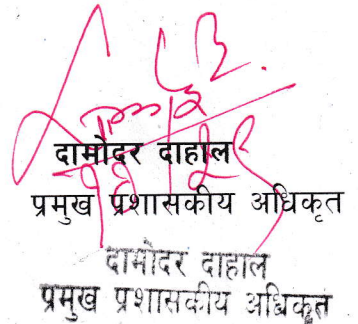 दामोदर दाहाल
प्रमुख प्रशासकीय अधिकृत
दामोदर दाहाल
प्रमुख प्रशासकीय अधिकृत